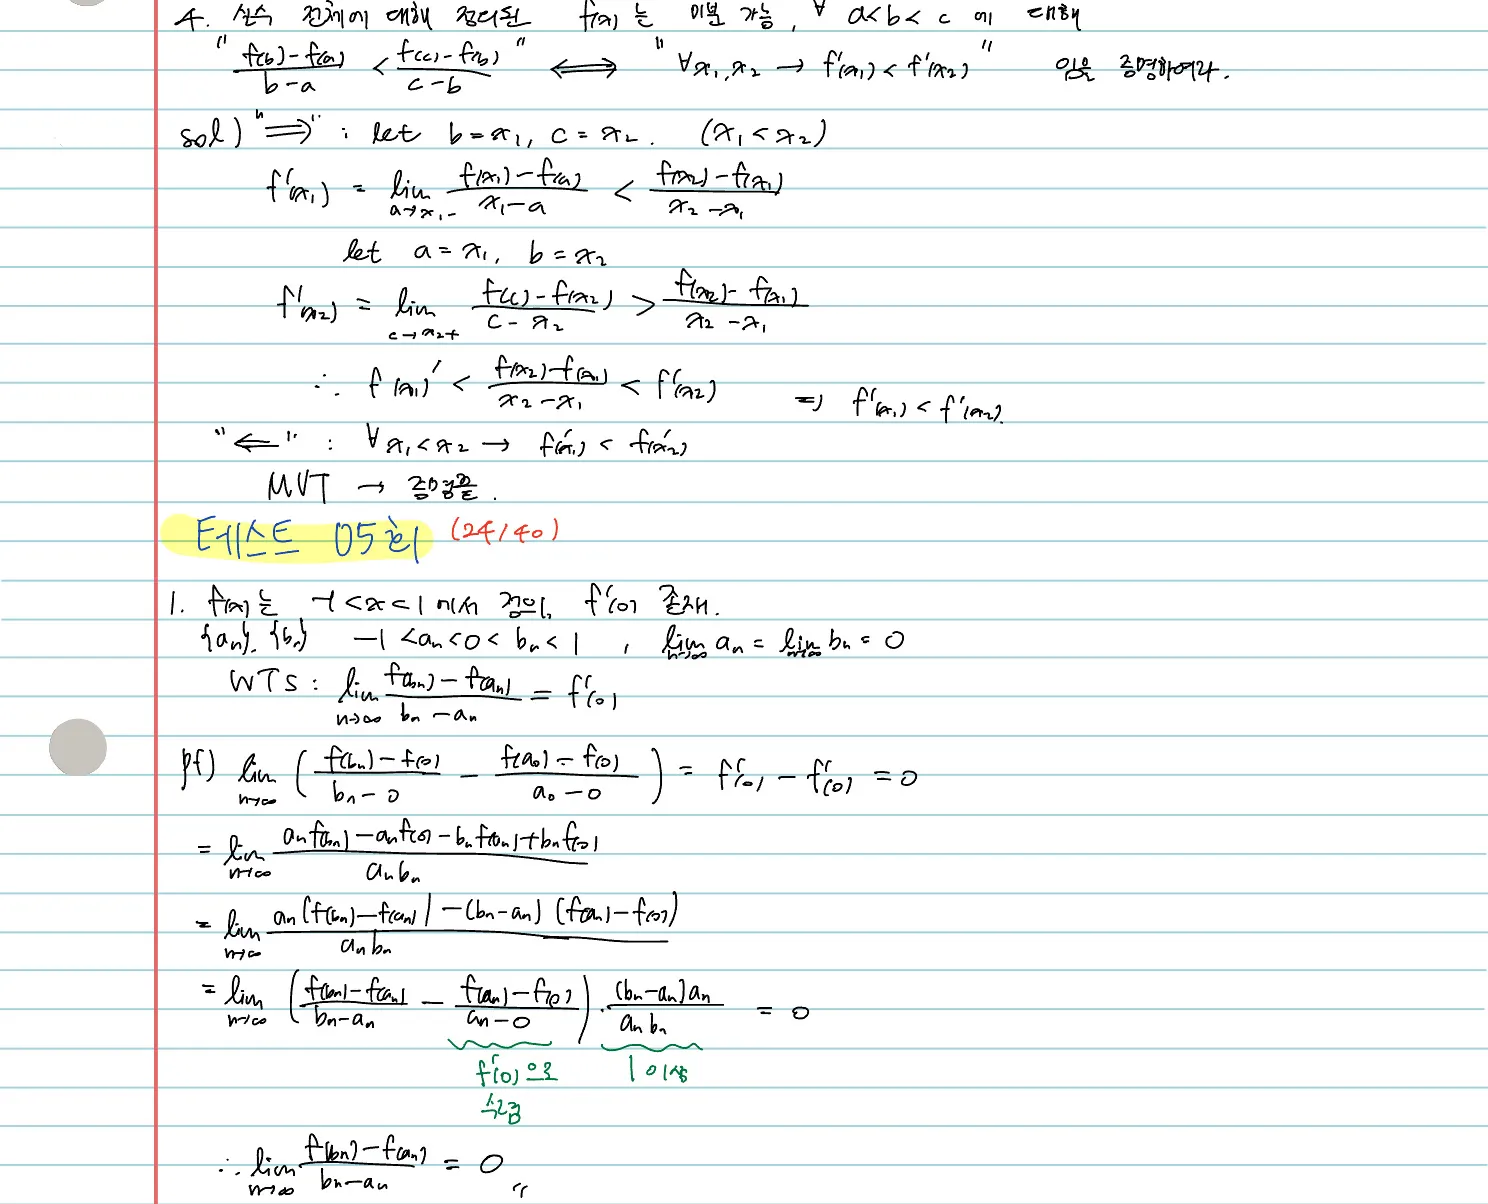 4. 실수 전체에 대해 정의된 f(x)는 미분 가능, ∀ a<b<c 에 대해
"(f(b)-f(a))/(b-a) < (f(c)-f(b))/(c-b)" ⟺ "∀x₁,x₂ → f'(x₁)<f'(x₂)" 임을 증명하여라.
sol) "⟹" : let b=x₁, c=x₂. (x₁<x₂)
f'(x₁) = lim_{a→x₁-} (f(x₁)-f(a))/(x₁-a) < (f(x₂)-f(x₁))/(x₂-x₁)
let a=x₁, b=x₂
f'(x₂) = lim_{c→x₂+} (f(c)-f(x₂))/(c-x₂) > (f(x₂)-f(x₁))/(x₂-x₁)
∴ f(x₁)' < (f(x₂)-f(x₁))/(x₂-x₁) < f'(x₂) ⇒ f'(x₁)<f'(x₂).
"⟸" : ∀x₁<x₂ → f'(x₁) < f'(x₂)
MVT → 증명끝.
테스트 05회 (24/40)
1. f(x)는 -1<x<1에서 정의, f'(0) 존재.
{aₙ}, {bₙ} -1<aₙ<0<bₙ<1, lim_{n→∞} aₙ = lim_{n→∞} bₙ = 0
WTS : lim_{n→∞} (f(bₙ)-f(aₙ))/(bₙ-aₙ) = f'(0)
pf) lim_{n→∞} ( (f(bₙ)-f(0))/(bₙ-0) - (f(a₀)-f(0))/(a₀-0) ) = f'(0) - f'(0) = 0
= lim_{n→∞} (aₙf(bₙ)-aₙf(0)-bₙf(aₙ)+bₙf(0))/(aₙbₙ)
= lim_{n→∞} (aₙ(f(bₙ)-f(aₙ))-(bₙ-aₙ)(f(aₙ)-f(0)))/(aₙbₙ)
= lim_{n→∞} ( (f(bₙ)-f(aₙ))/(bₙ-aₙ) - (f(aₙ)-f(0))/(aₙ-0) ) · ((bₙ-aₙ)aₙ)/(aₙbₙ) = 0
f'(0)으로 1 이상
수렴
∴ lim_{n→∞} (f(bₙ)-f(aₙ))/(bₙ-aₙ) = 0 〃